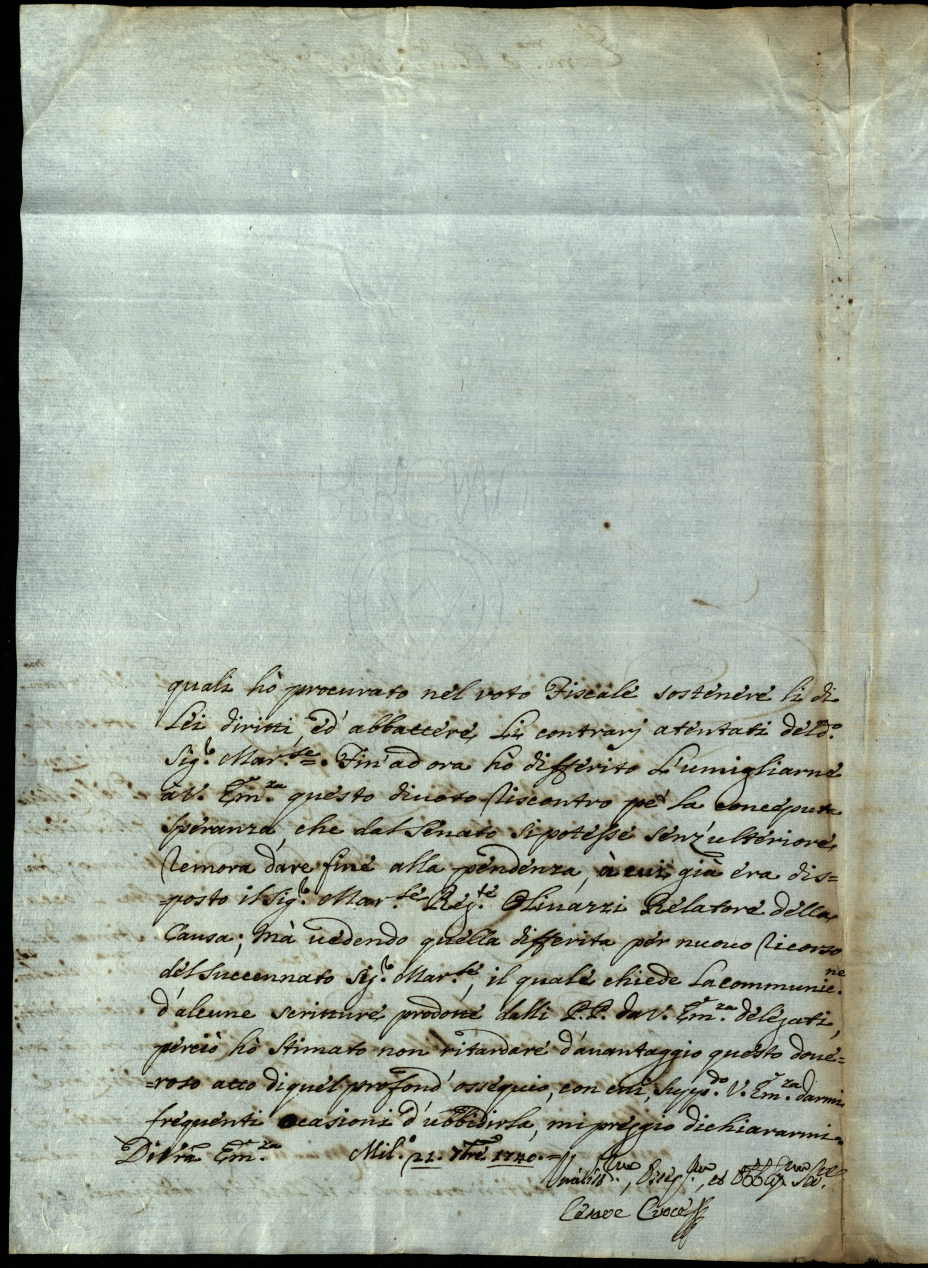 quali hò procurato nel voto Fiscale sostenere li di
Lei diritti, ed' abbattere li contrarj atentati del d.º
Sig.r Mar.se. Fin' ad ora hò differito l'umigliarne
à V. Em.za questo divoto riscontro pe' la conceputa
speranza, che dal Senato si potesse senz' ulteriore
remora dare fine alla pendenza, à cui già era dis=
=posto il Sig.r Mar.se Reg.te Olivazzi Relatore della
Causa; mà vedendo quella differita per nuovo ricorso
del succennato Sig.r Mar.se, il quale chiede la communic.ne
d'alcune scritture prodotte dalli P.P. da V. Em.za delegati,
perciò hò stimato non ritardare d'avantaggio questo dove=
=roso atto di quel profond' ossequio, con cui, supp.do V. Em.za darmi
frequenti ocasioni d'ubbidirla, mi preggio dichiararmi
Di V.ra Em.za Mil.º 21. 7bre 1740.
Umiliss.mo, Osseq.mo, et Obblig.mo Ser.re
Cesare Croce